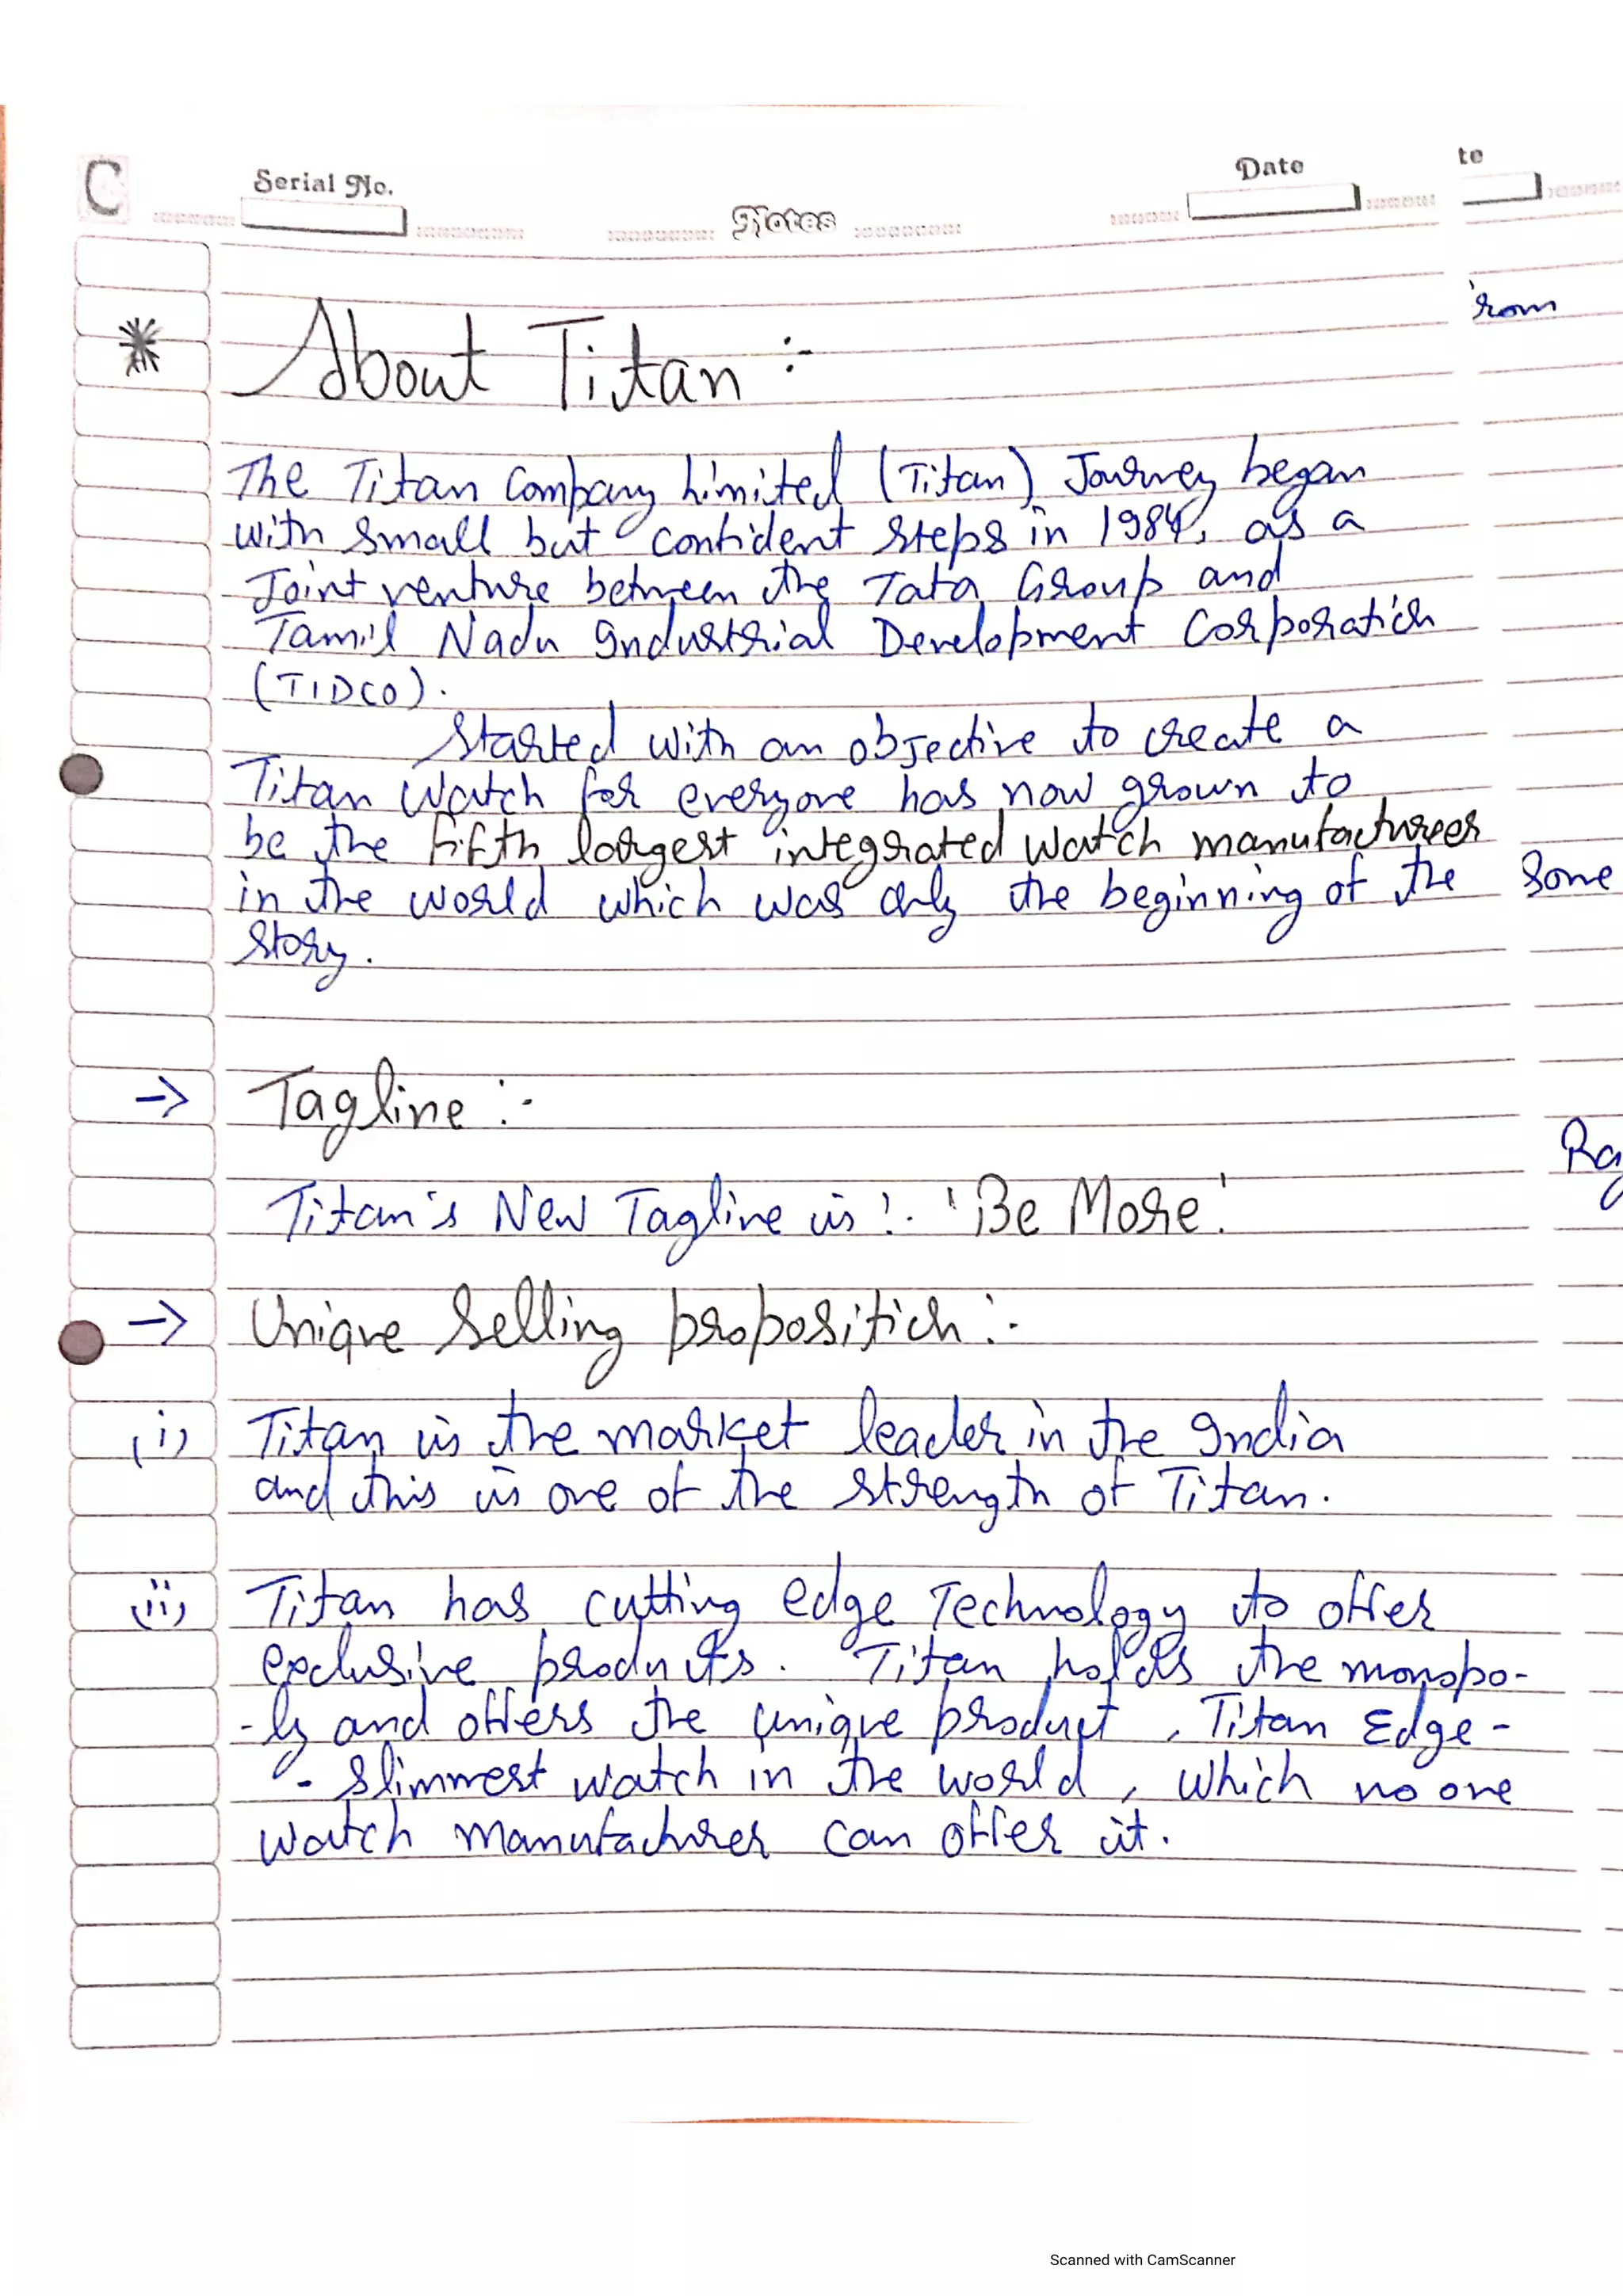 C
Serial No.
Notes
Date
te
rom
* About Titan :-
The Titan Company Limited (Titan) Journey began
with small but confident steps in 1984, as a
Joint venture between the Tata Group and
Tamil Nadu Industrial Development Corporation
(TIDCO).
Started with an objective to create a
Titan Watch for everyone has now grown to
be the fifth largest integrated watch manufactureer
in the world which was only the beginning of the
story.
Some
-> Tagline :-
Ra
Titan's New Tagline is :- 'Be More'
-> Unique Selling proposition :-
(i) Titan is the market leader in the India
and this is one of the strength of Titan.
(ii) Titan has cutting edge Technology to offer
exclusive products. Titan holds the monopo-
-ly and offers the unique product, Titan Edge -
- Slimmest watch in the world, which no one
watch manufacturer can offer it.
Scanned with CamScanner